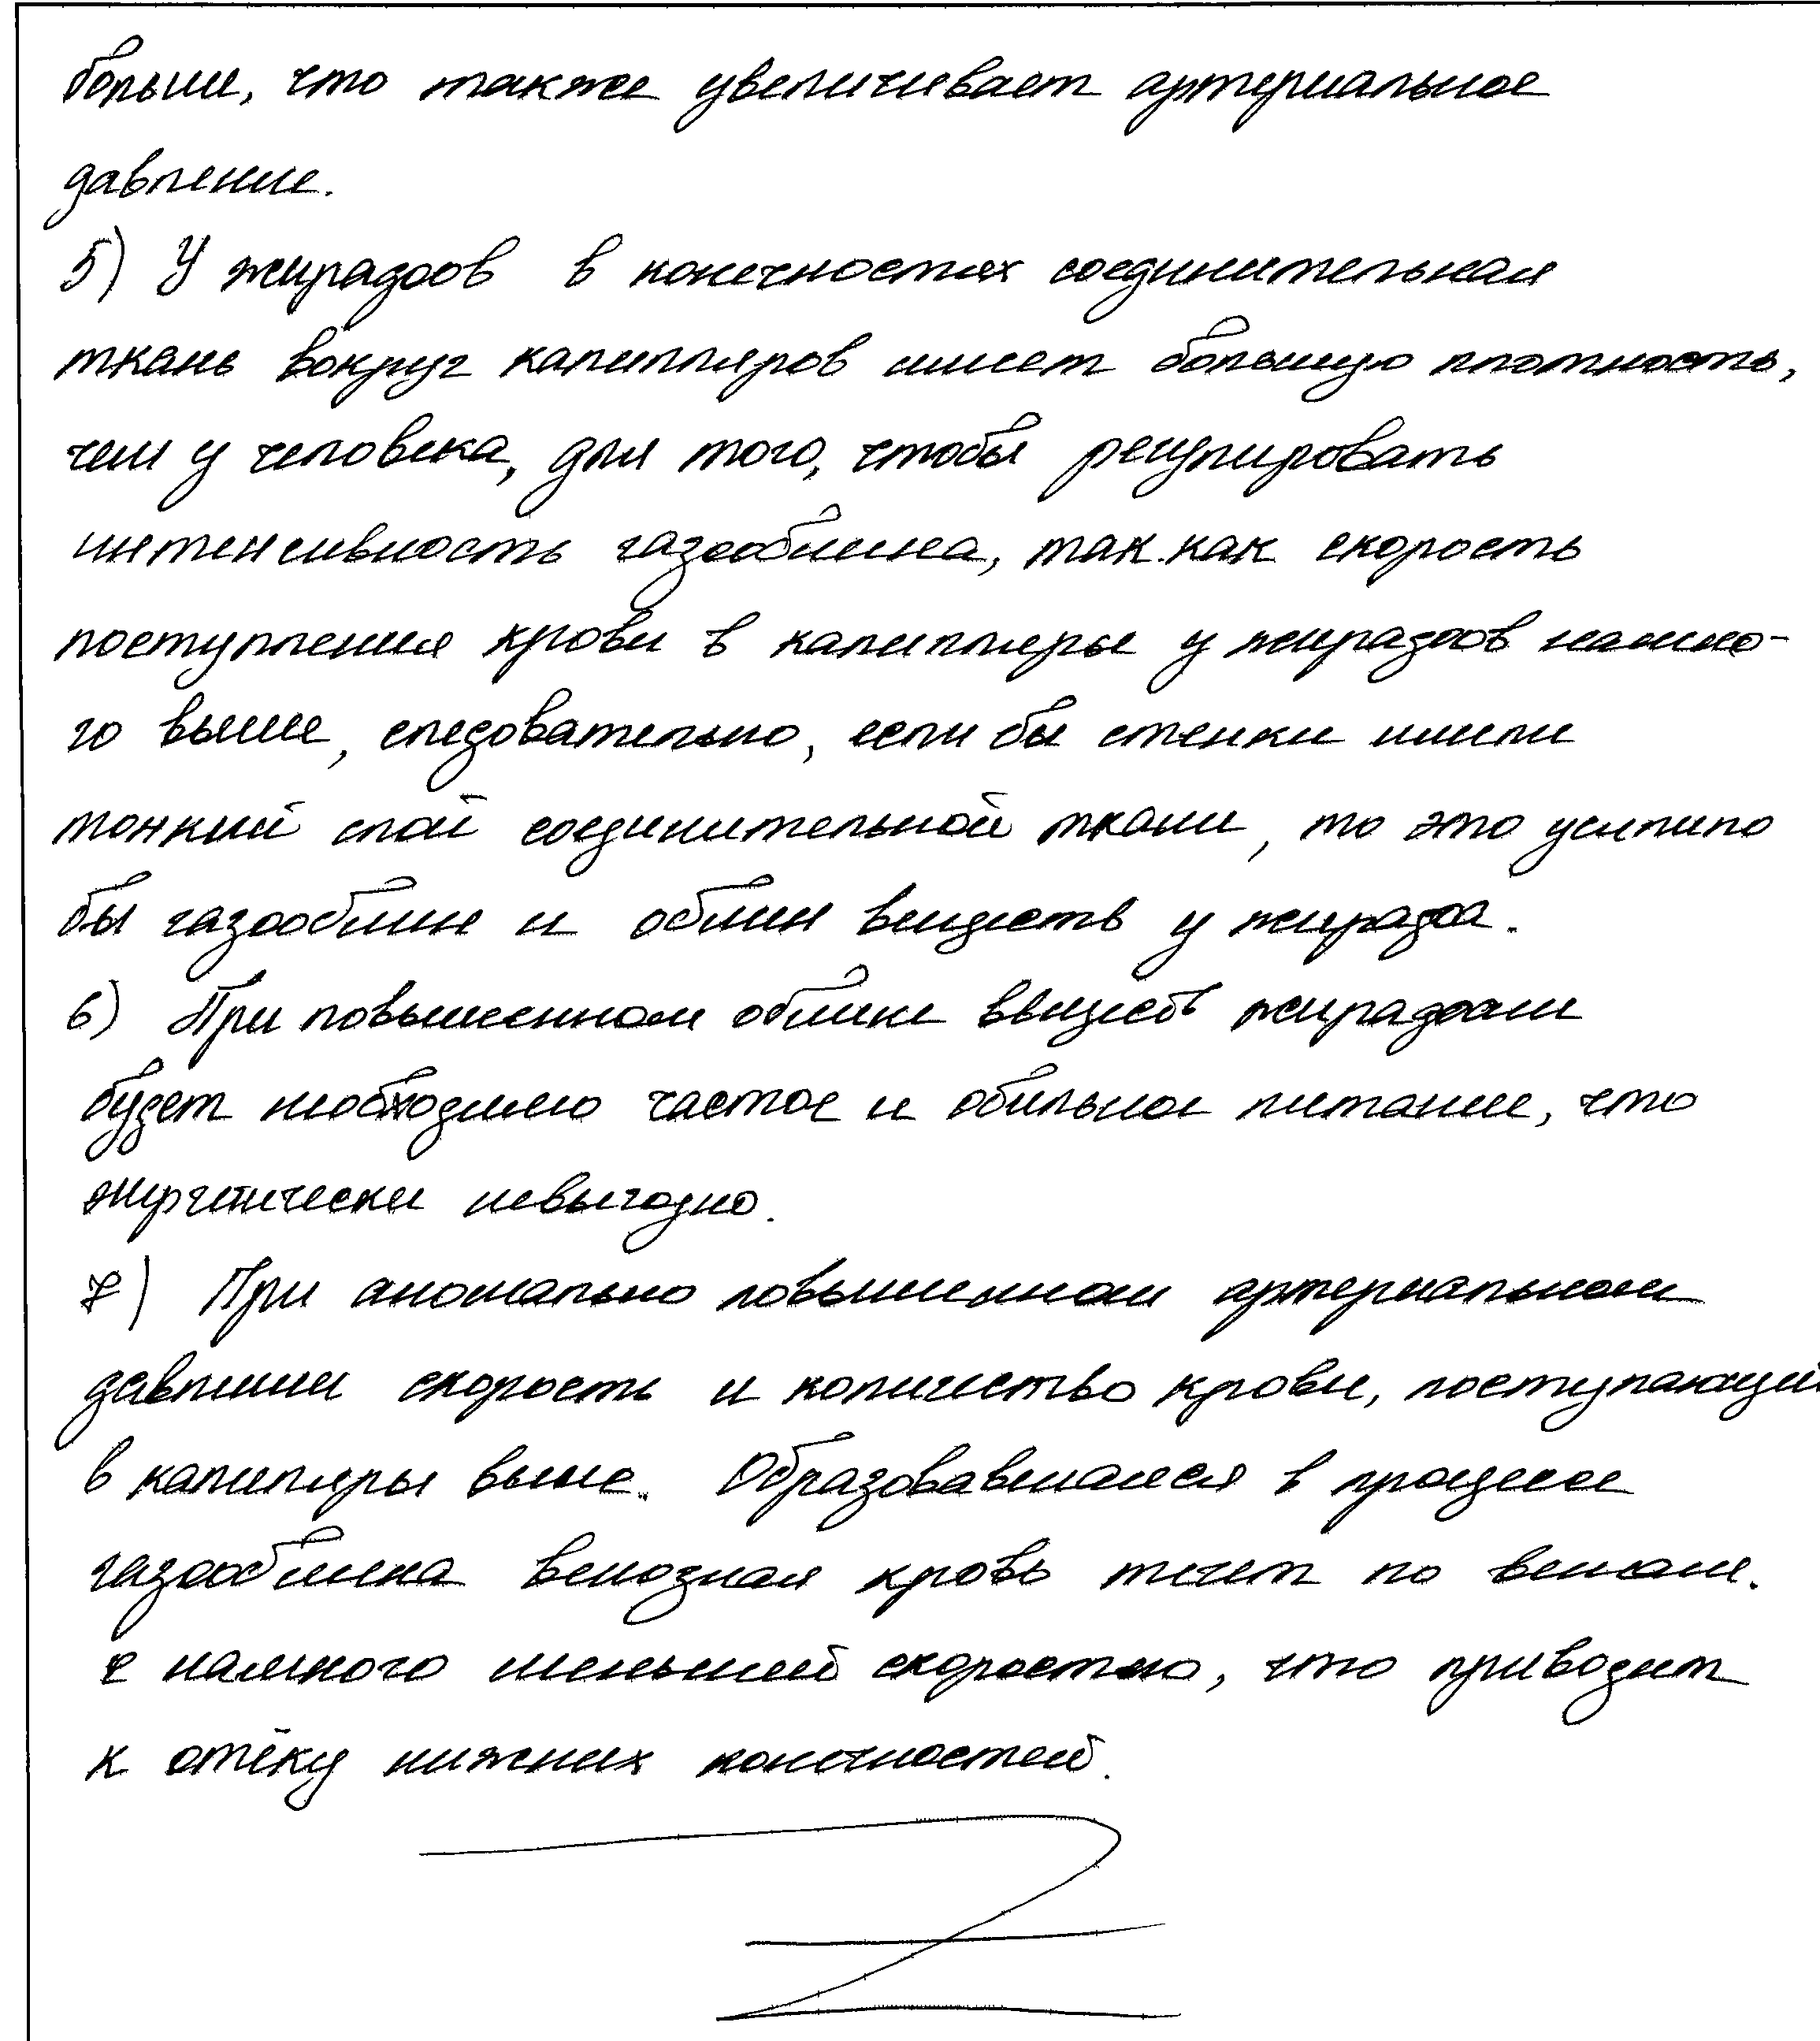 больше, что также увеличивает артериальное
давление.
5) У жирафов в конечностях соединительная
ткань вокруг капилляров имеет большую плотность,
чем у человека, для того, чтобы регулировать
интенсивность газообмена, так как скорость
поступления крови в капилляры у жирафов намно-
го выше, следовательно, если бы стенки имели
тонкий слой соединительной ткани, то это усилило
бы газообмен и обмен веществ у жирафа.
6) При повышенном обмене веществ жирафам
будет необходимо частое и обильное питание, что
энергетически невыгодно.
7) При аномально повышенном артериальном
давлении скорость и количество крови, поступающей
в капилляры выше. Образовавшаяся в процессе
газообмена венозная кровь течет по венам.
с намного меньшей скоростью, что приводит
к отёку нижних конечностей.